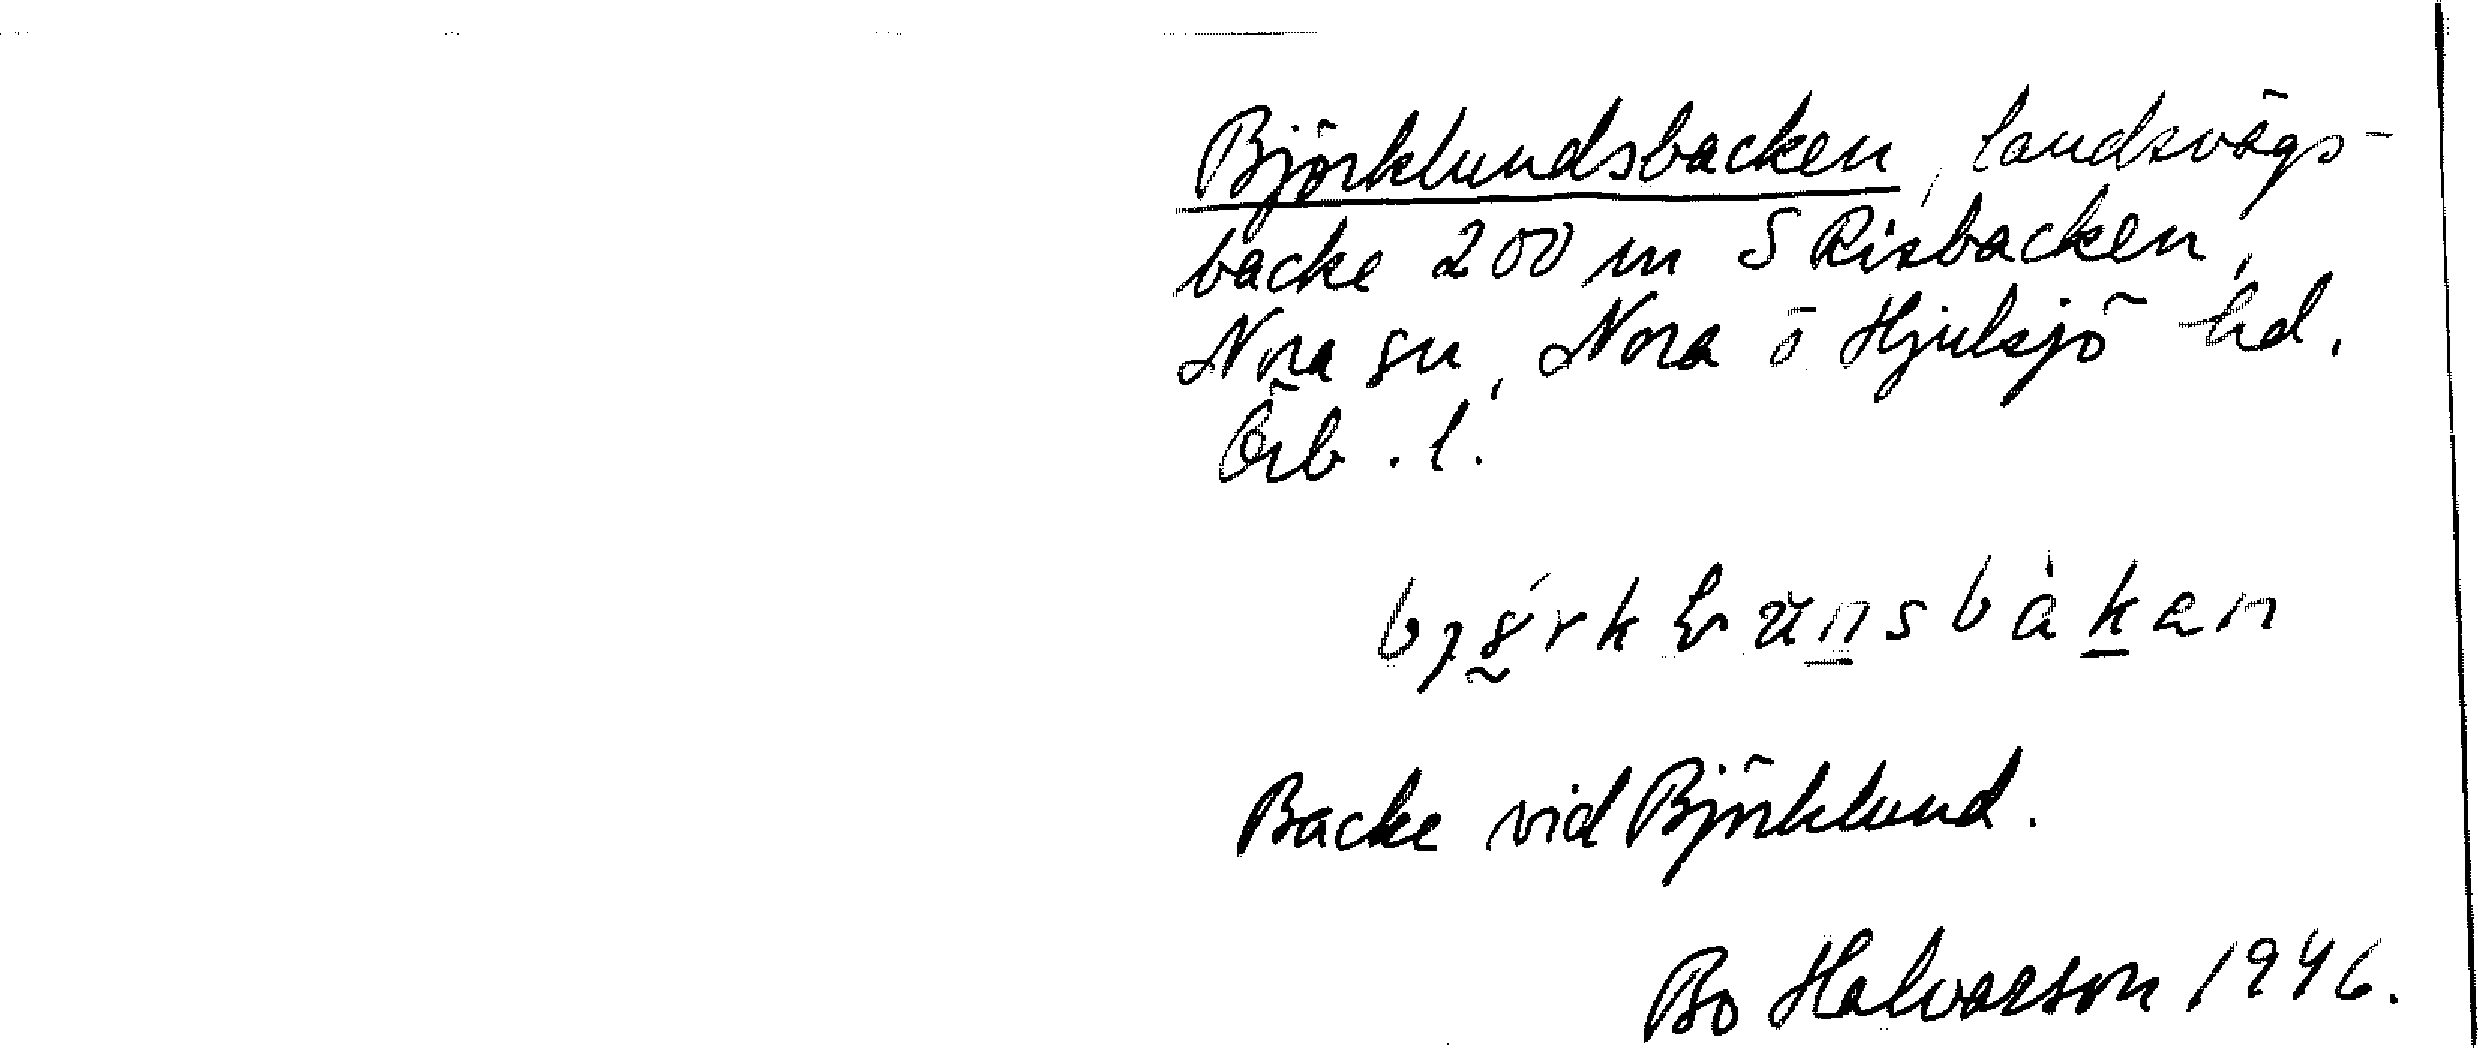 Björklundsbacken, landsvägs-
backe 200 m S Risbacken,
Nora sn, Nora o Hjulsjö hd.
Örb. l.
Backe vid Björklund.
Bo Halvarson 1946.